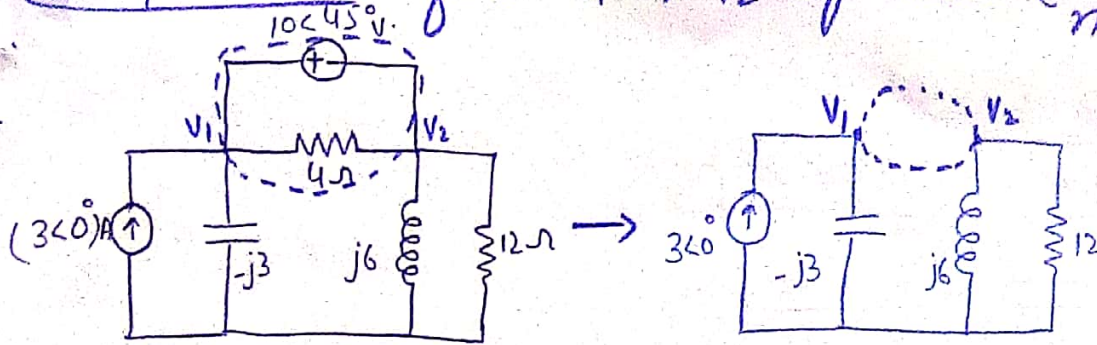 10<45° V.
V₁
V₂
4Ω
(3<0°)A
-j3
j6
12Ω
V₁
V₂
3<0°
-j3
j6
12